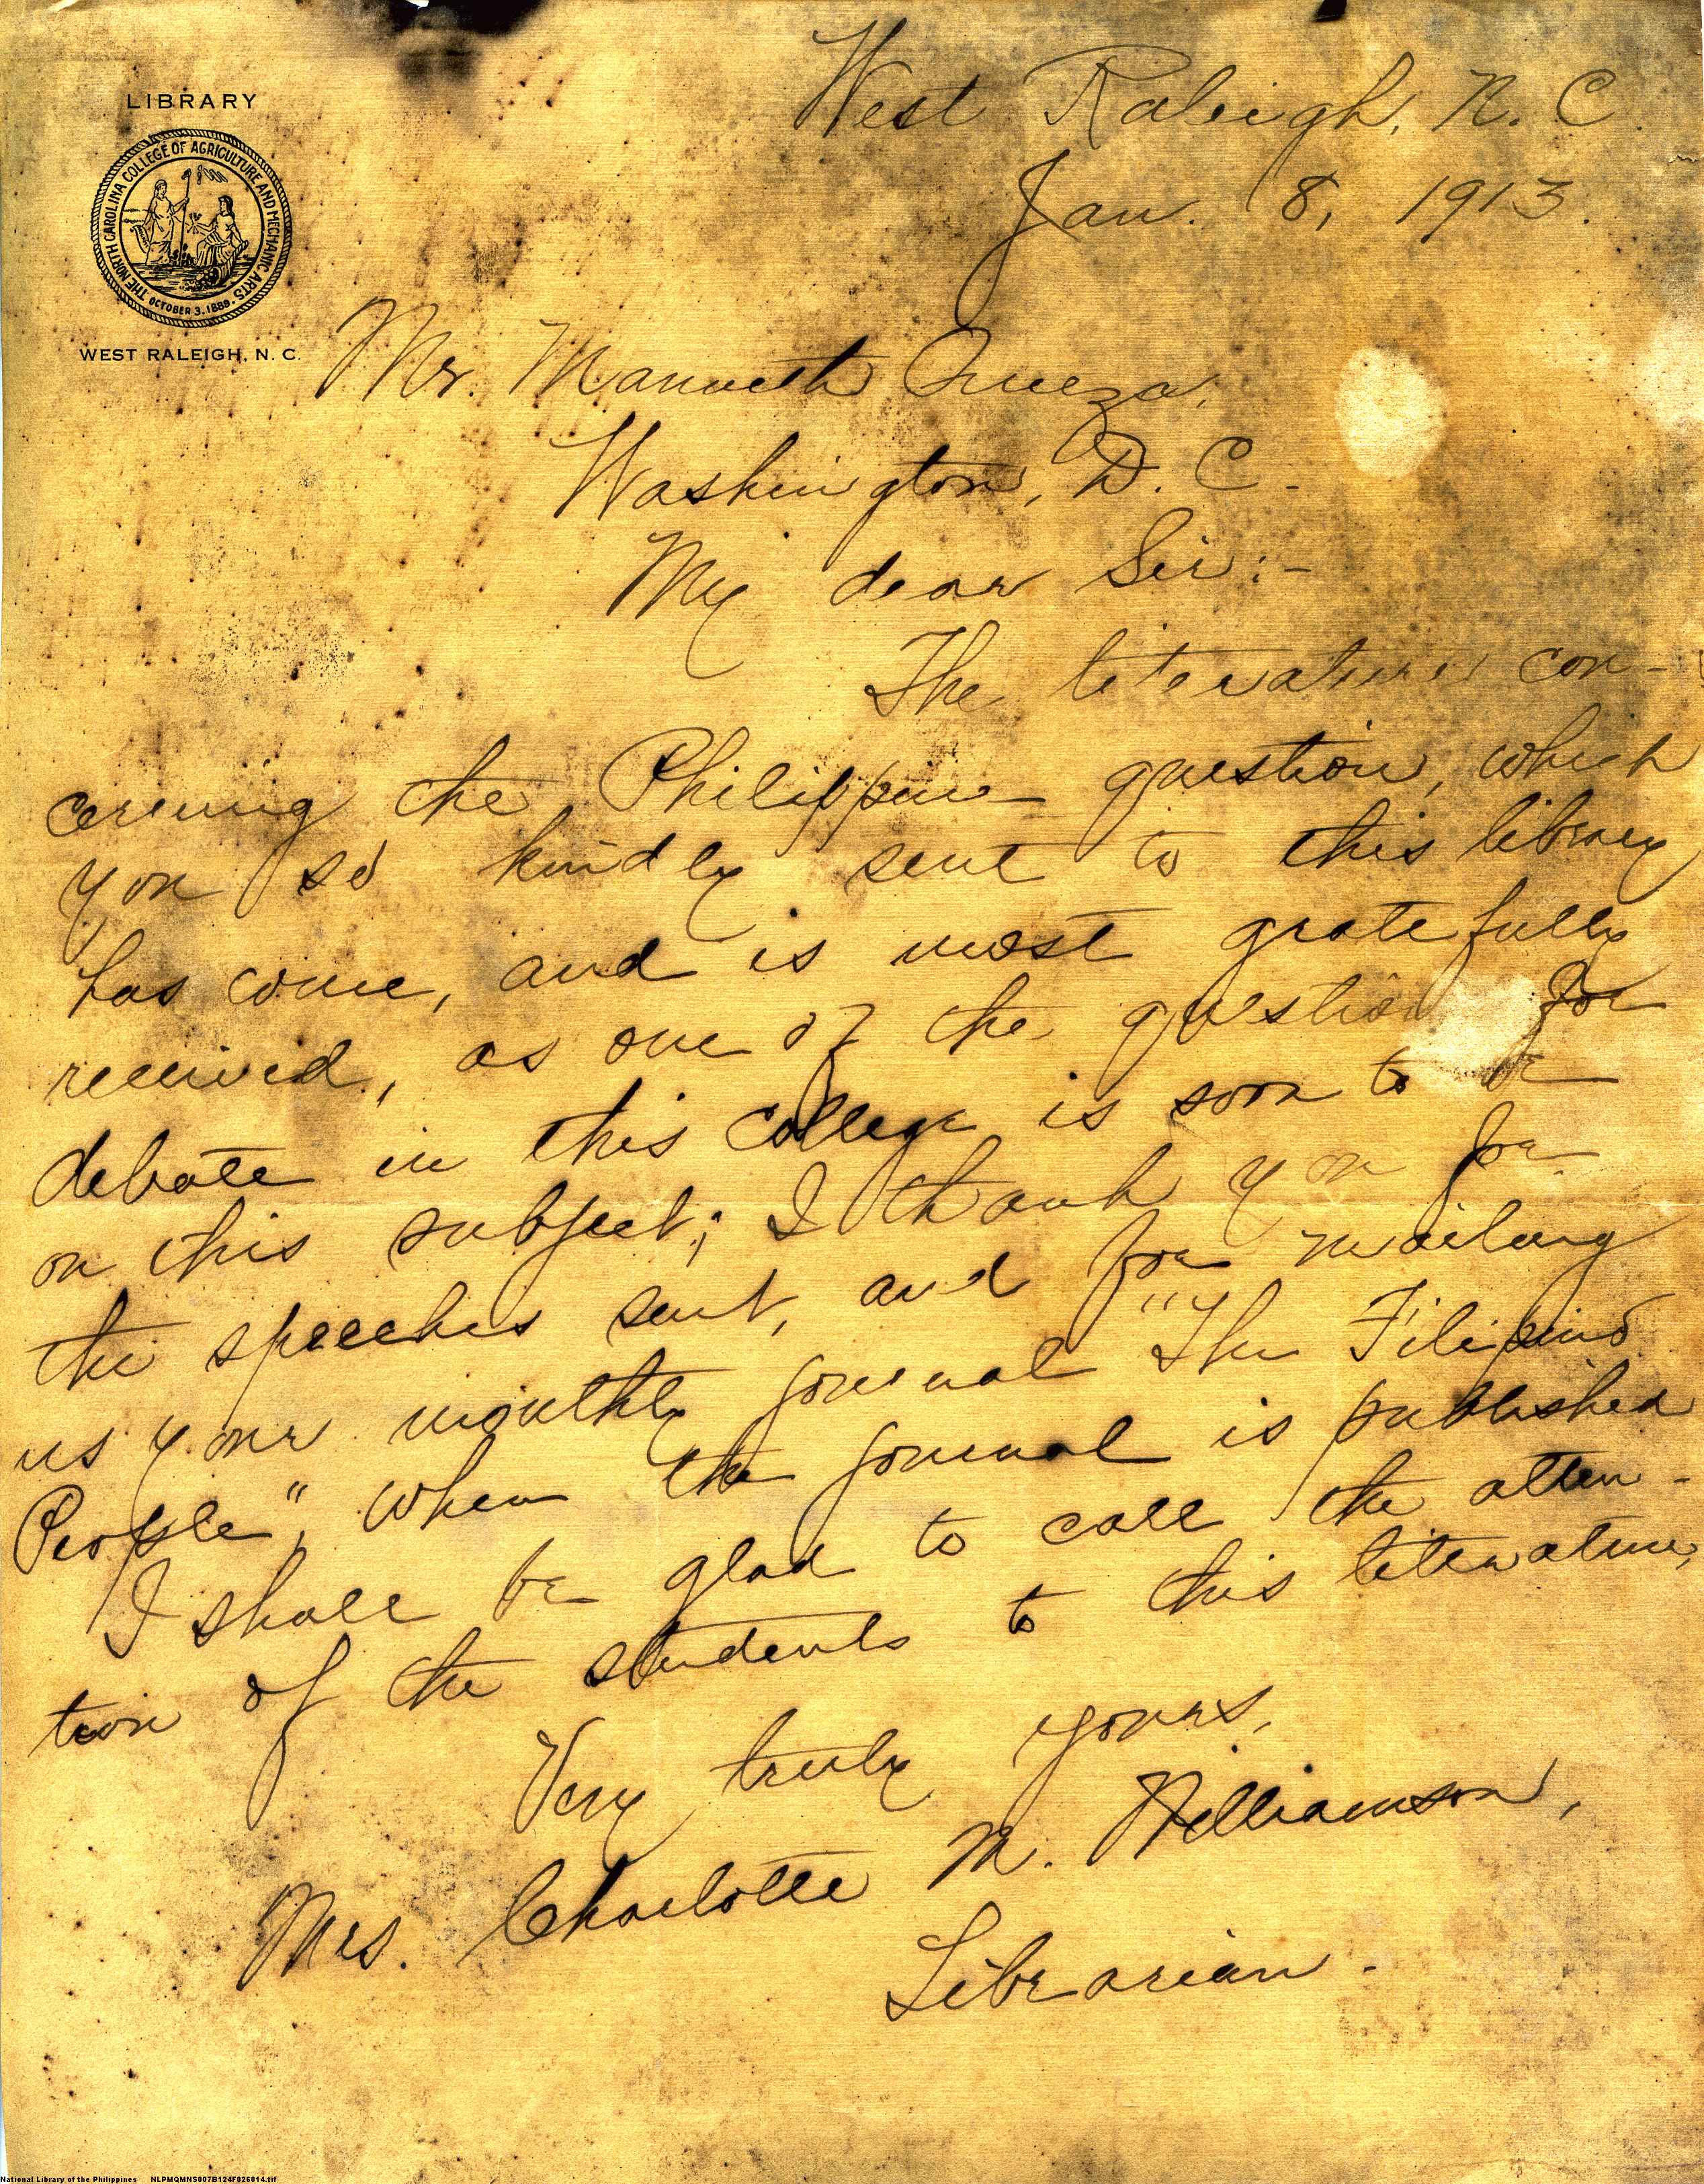 LIBRARY
THE NORTH CAROLINA COLLEGE OF AGRICULTURE AND MECHANIC ARTS
OCTOBER 3. 1889.
WEST RALEIGH, N. C.
West Raleigh, N. C.
Jan. 8, 1913.
Mr.
Washington, D. C.
My dear Sir:-
The literature con-
cerning the Philippine question, which
you so kindly sent to this library
has come, and is most gratefully
received, as one of the question for
debate in this college is soon to be
on this subject; I thank you for
the speeches sent, and for mailing
us your monthly journal "The Filipino
People", when the journal is published
I shall be glad to call the atten-
tion of the students to this literature,
Very truly yours,
Mrs. Charlotte M. Williamson,
Librarian.
National Library of the Philippines NLPMQMNS007B124F026014.tif